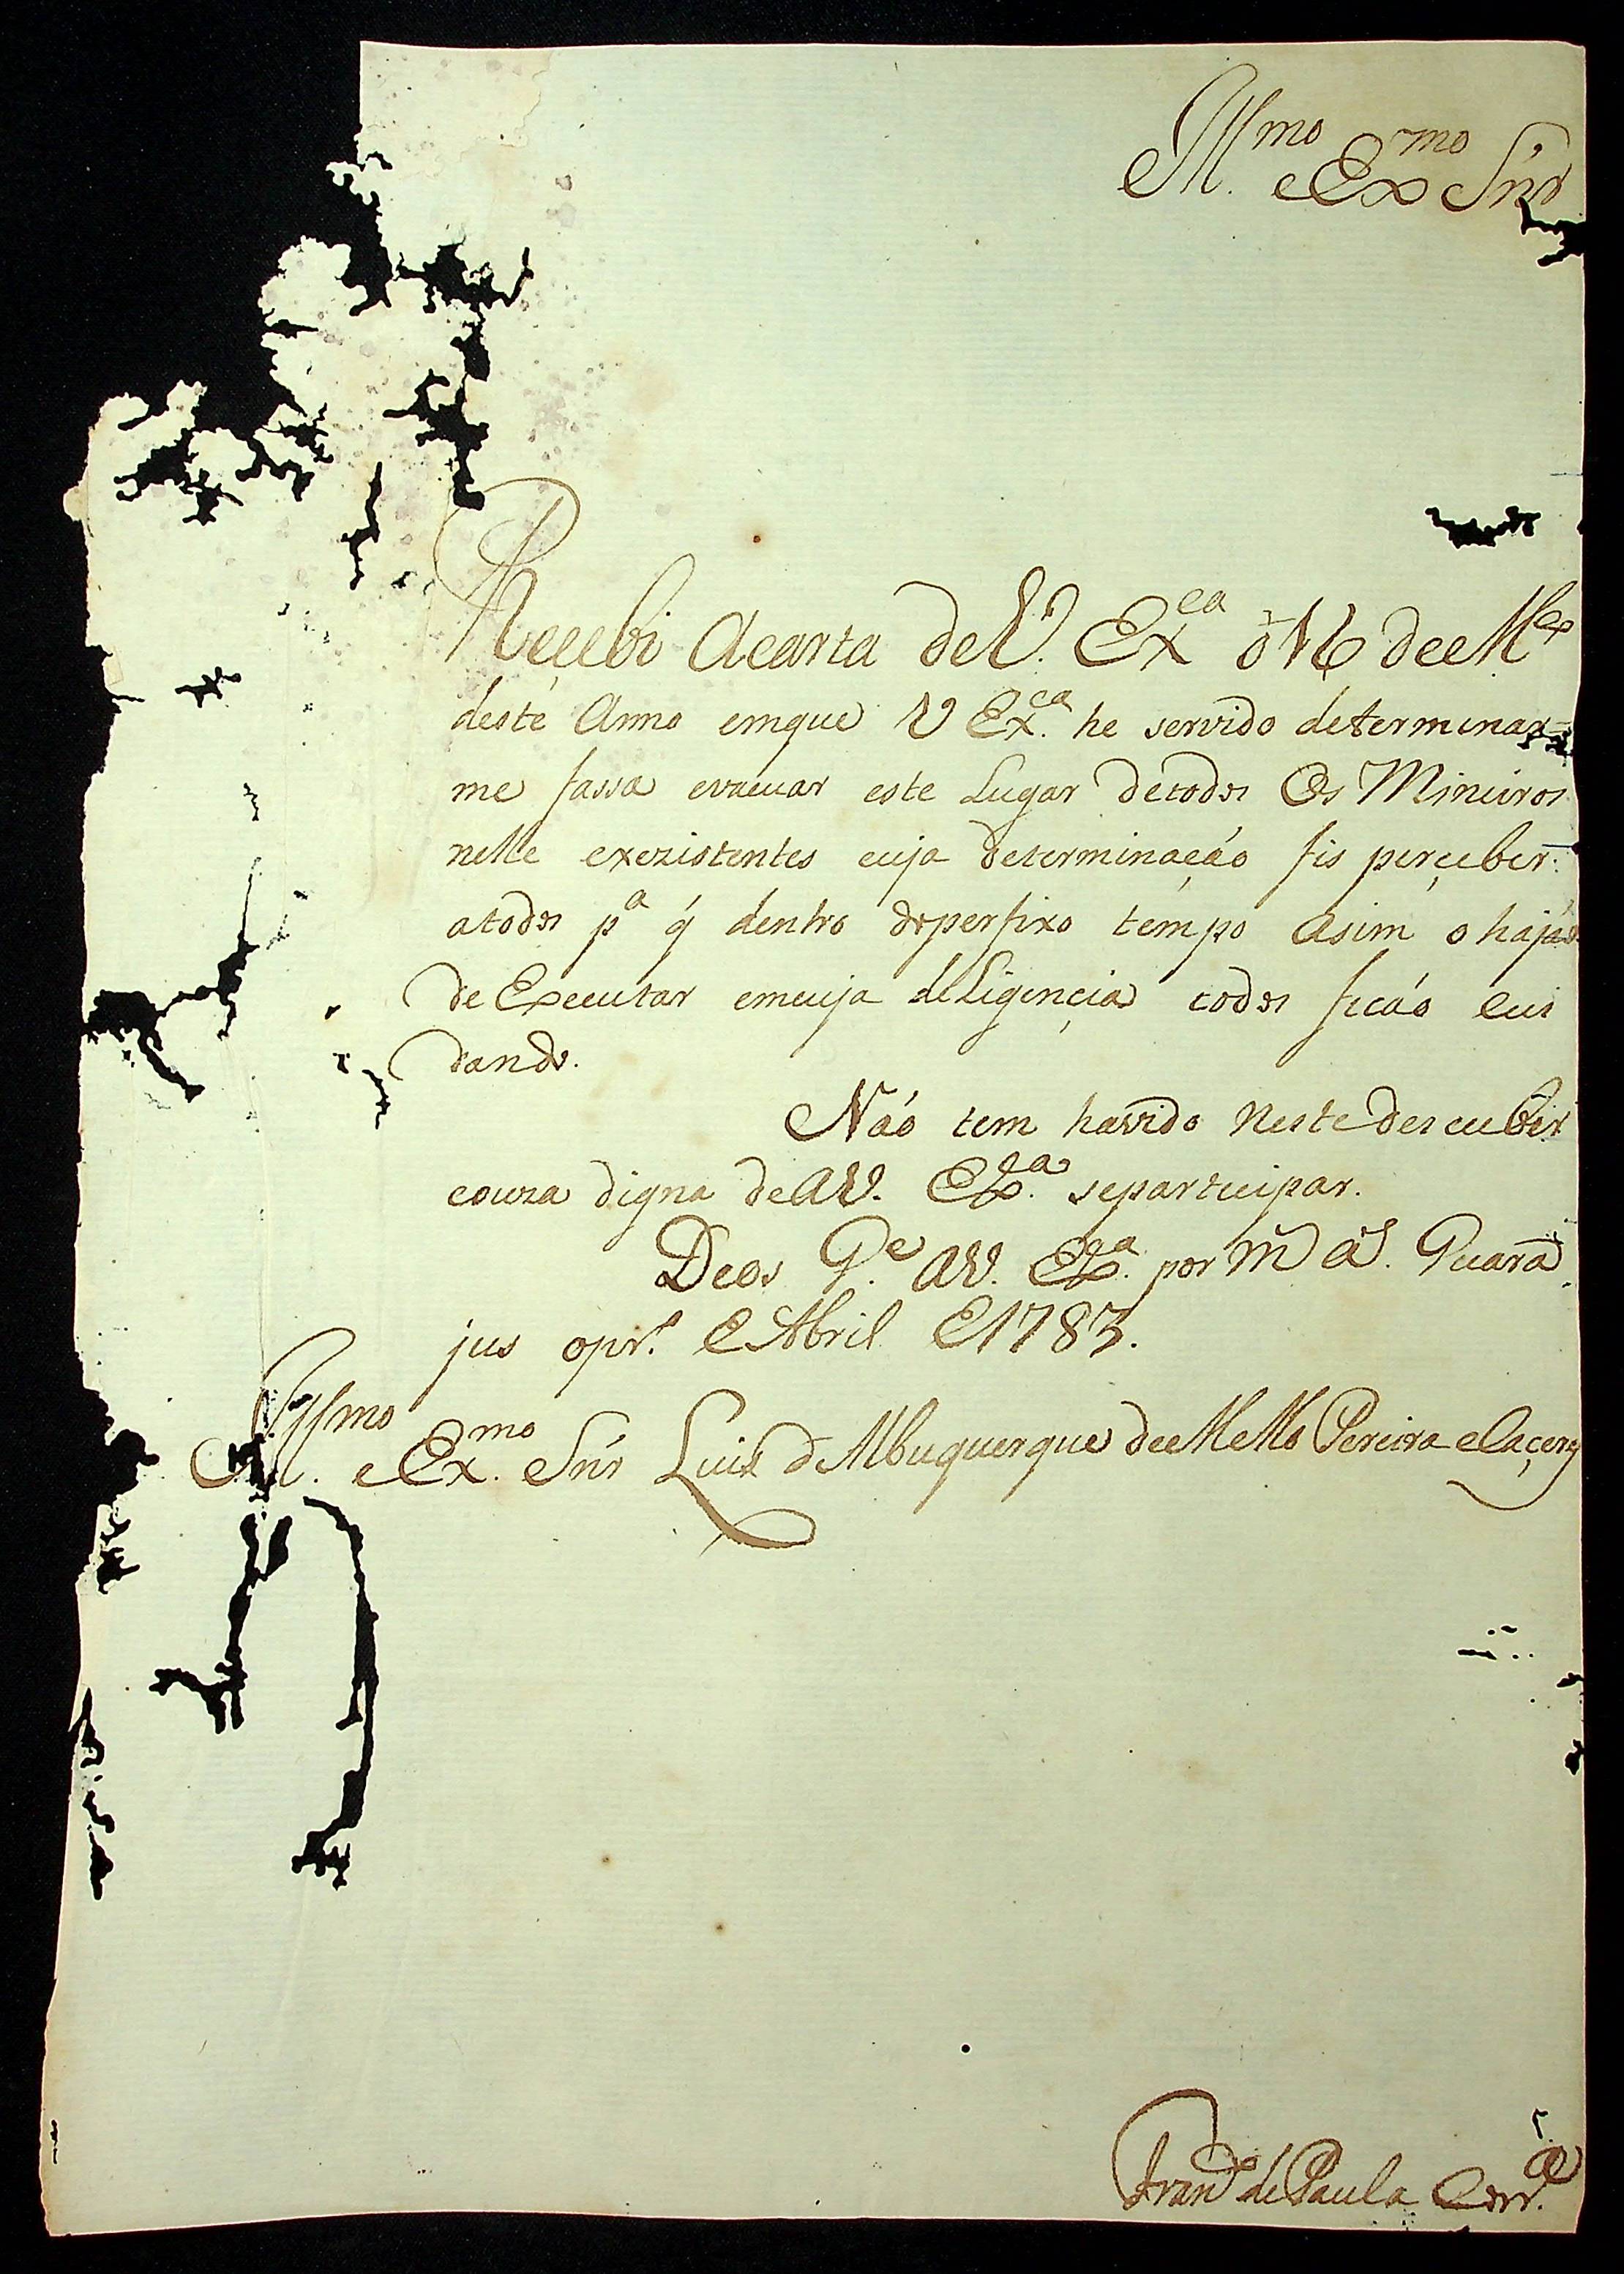 Illmo Exmo Snr
Reçebi Acarta deV. Exca de 16 de Mço
deste Anno emque V Exca. he servido determinar=
me fassa evacuar este Lugar detodos Os Mineiros
nelle exezistentes cuja determinação fis perçeber
atodos pa q' dentro doperfixo tempo asim o hajão
de Executar emcuja deligençia todos ficão cui
dando.
Não tem havido Neste descuber
couza digna de AV. Exa. separticipar.
Deos Ge. AV. Exa. por ms as. Guara
jus opro. de Abril de 1783.
Illmo. e Exmo. Snr Luis de Albuquerque de Mello Pereira e Caçeres
Frano de Paula Corra.